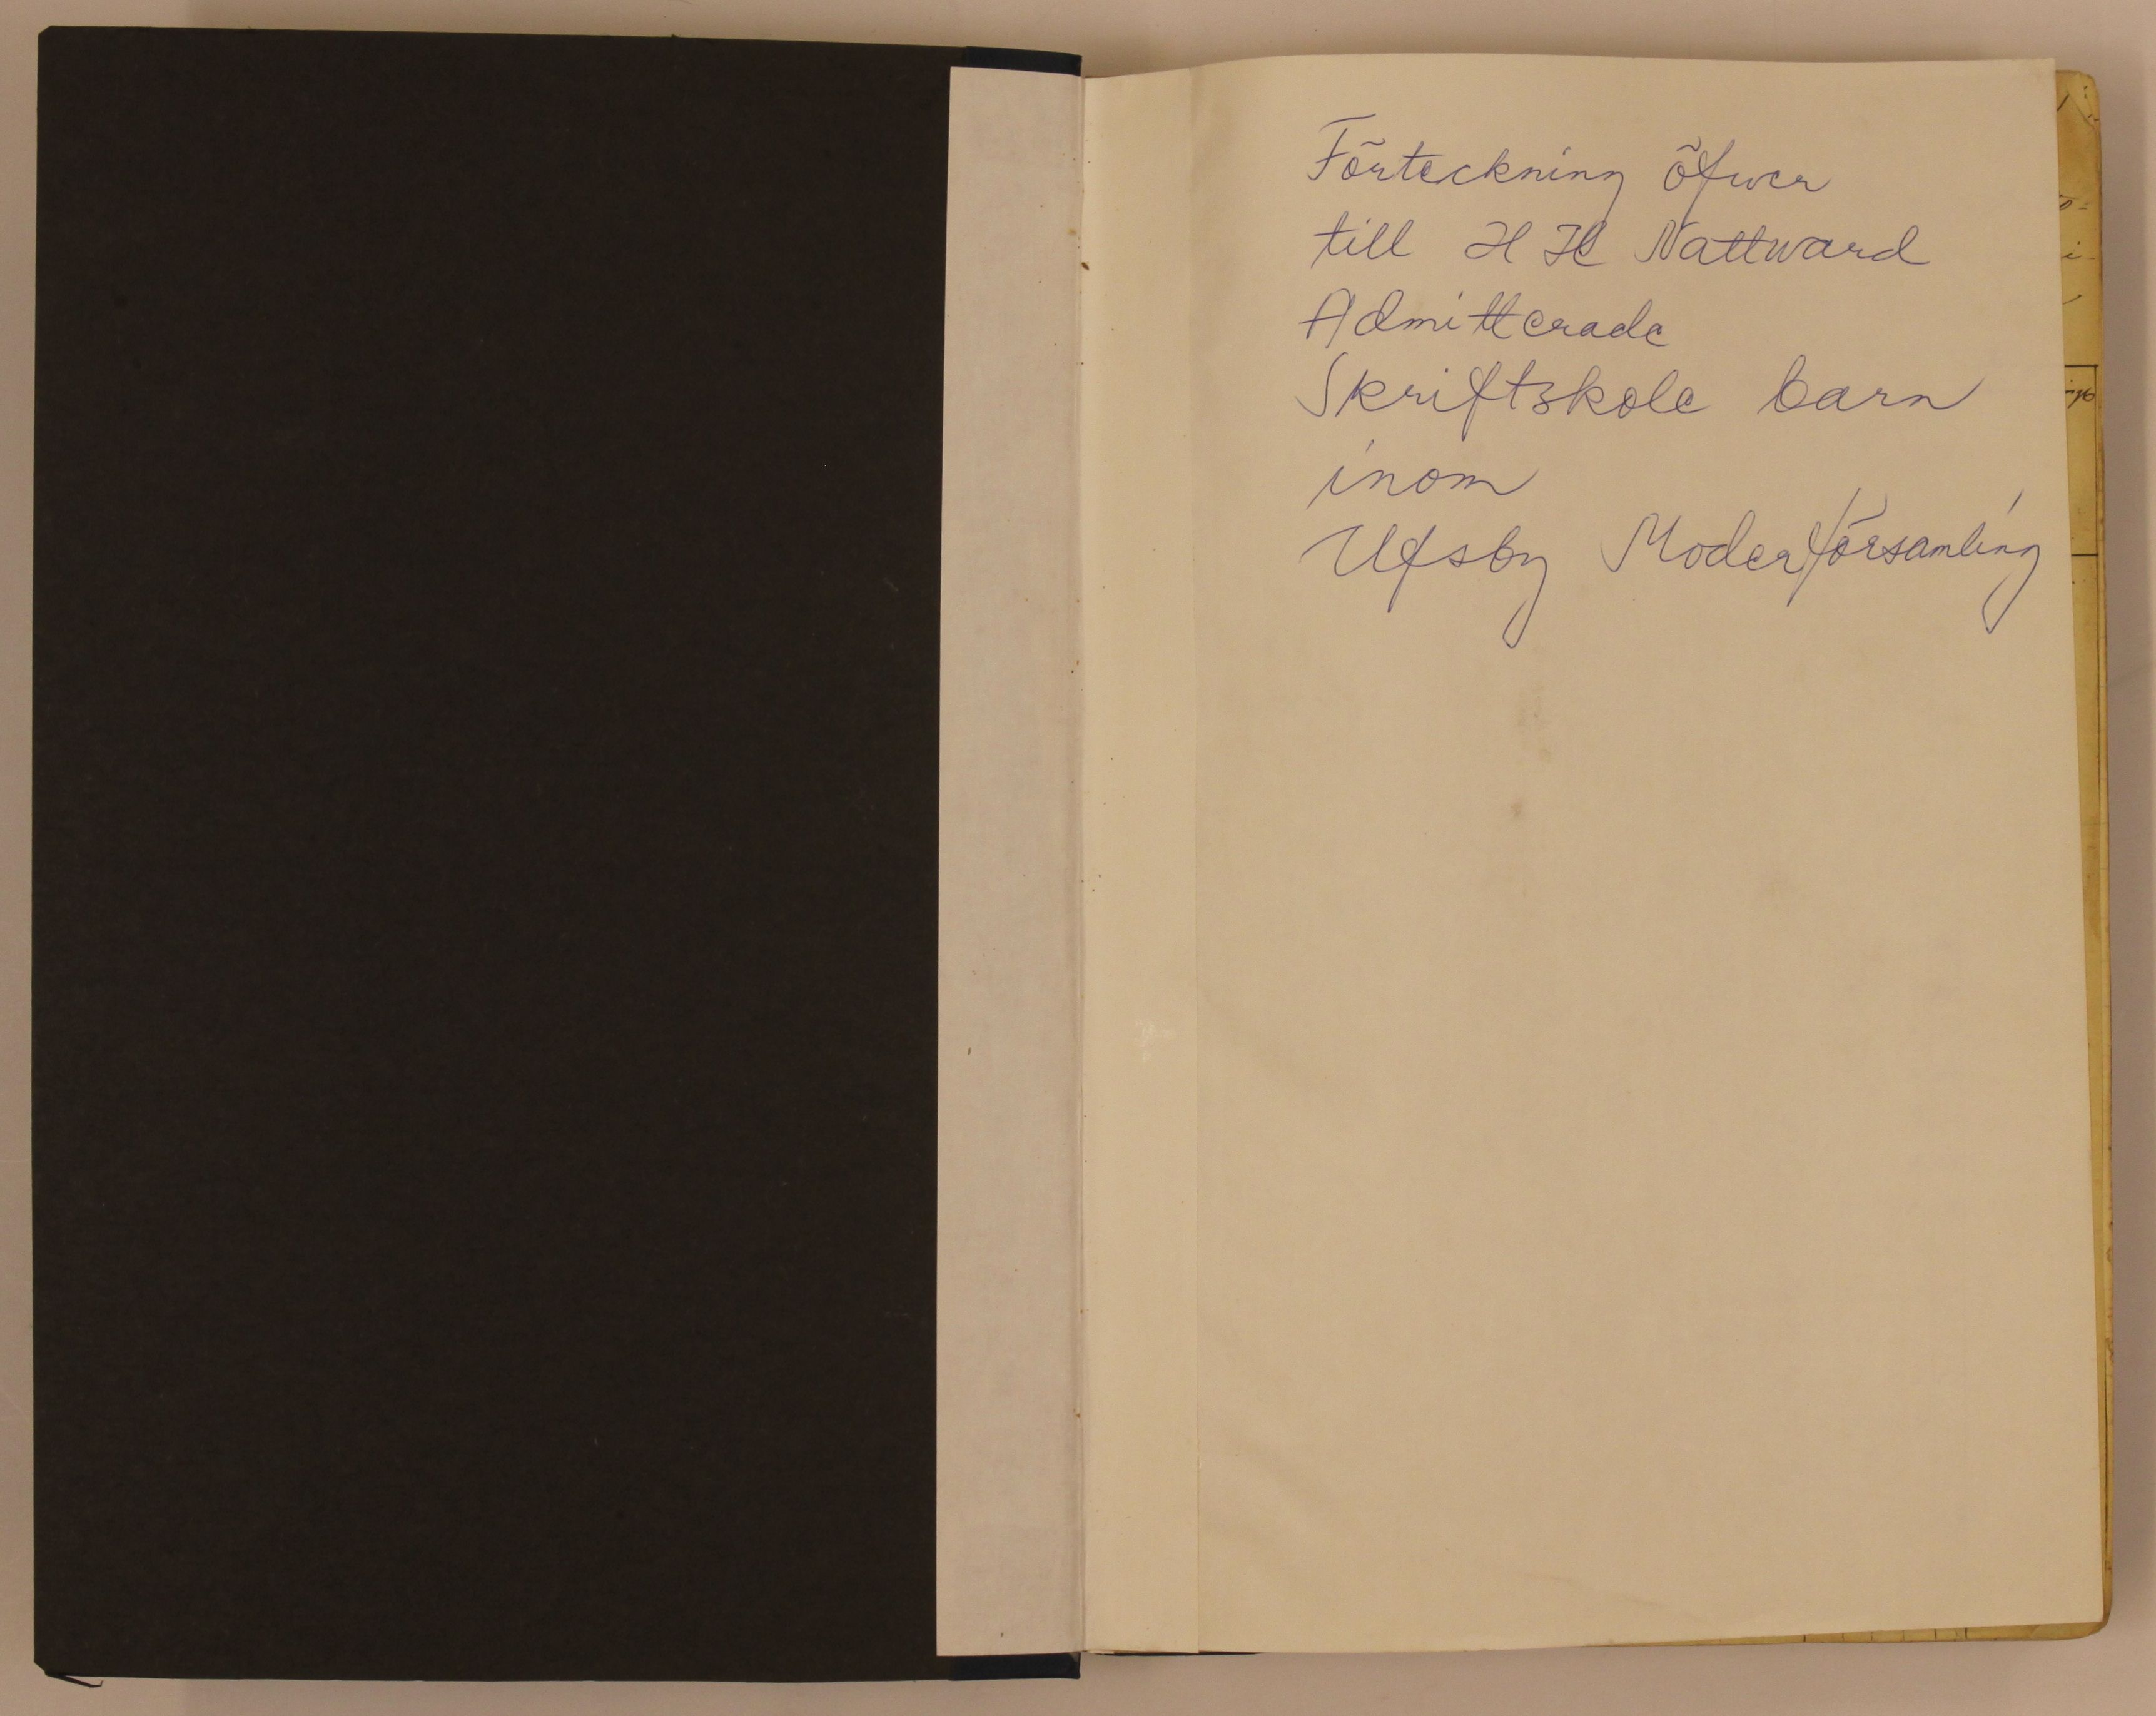 Förteckning öfwer
till H H Nattward
Admitterade
Skriftskole barn
inom
Ufsby Moderförsamling